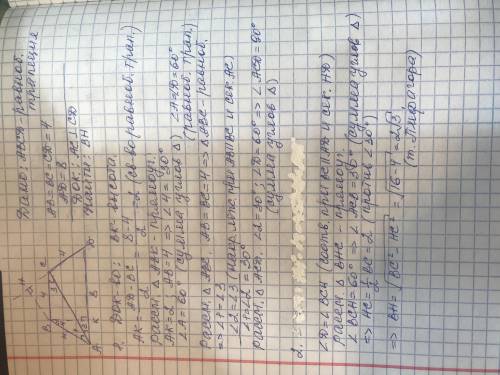 Дано: ABCD-равноб.
трапеция
AB=BC=CD=4
AD=8
Док: AC⊥CD
Найти: BH
1. Док-во: BK-высота,
AK = (AD-BC)/2 = (8-4)/2 = 2 (св-во равноб. трап.)
Рассм. Δ ABK - прямоуг.
AK=2 AB=4 => ∠4=30°
∠A=60° (сумма углов Δ) ∠A=∠D=60°
(равноб. трап.)
Рассм. Δ ABC. AB=BC=4 => Δ ABC-равноб.
=> ∠1=∠3
∠2=∠3 (накр. леж. при AD∥BC и сек. AC)
∠1=∠2=30°
Рассм. Δ ACD. ∠2=30°; ∠D=60° => ∠ACD=90°
(сумма углов Δ)
2.
∠D=∠BCH (соотв. при BC∥AD и сек. HD)
Рассм. Δ BHC - прямоуг.
∠BCH=60° => ∠HCB=30° (сумма углов Δ)
=> HC=1/2 BC=2 (против ∠30°)
=> BH=√(BC²-HC²)=√(16-4)=2√3
(т. Пифагора)